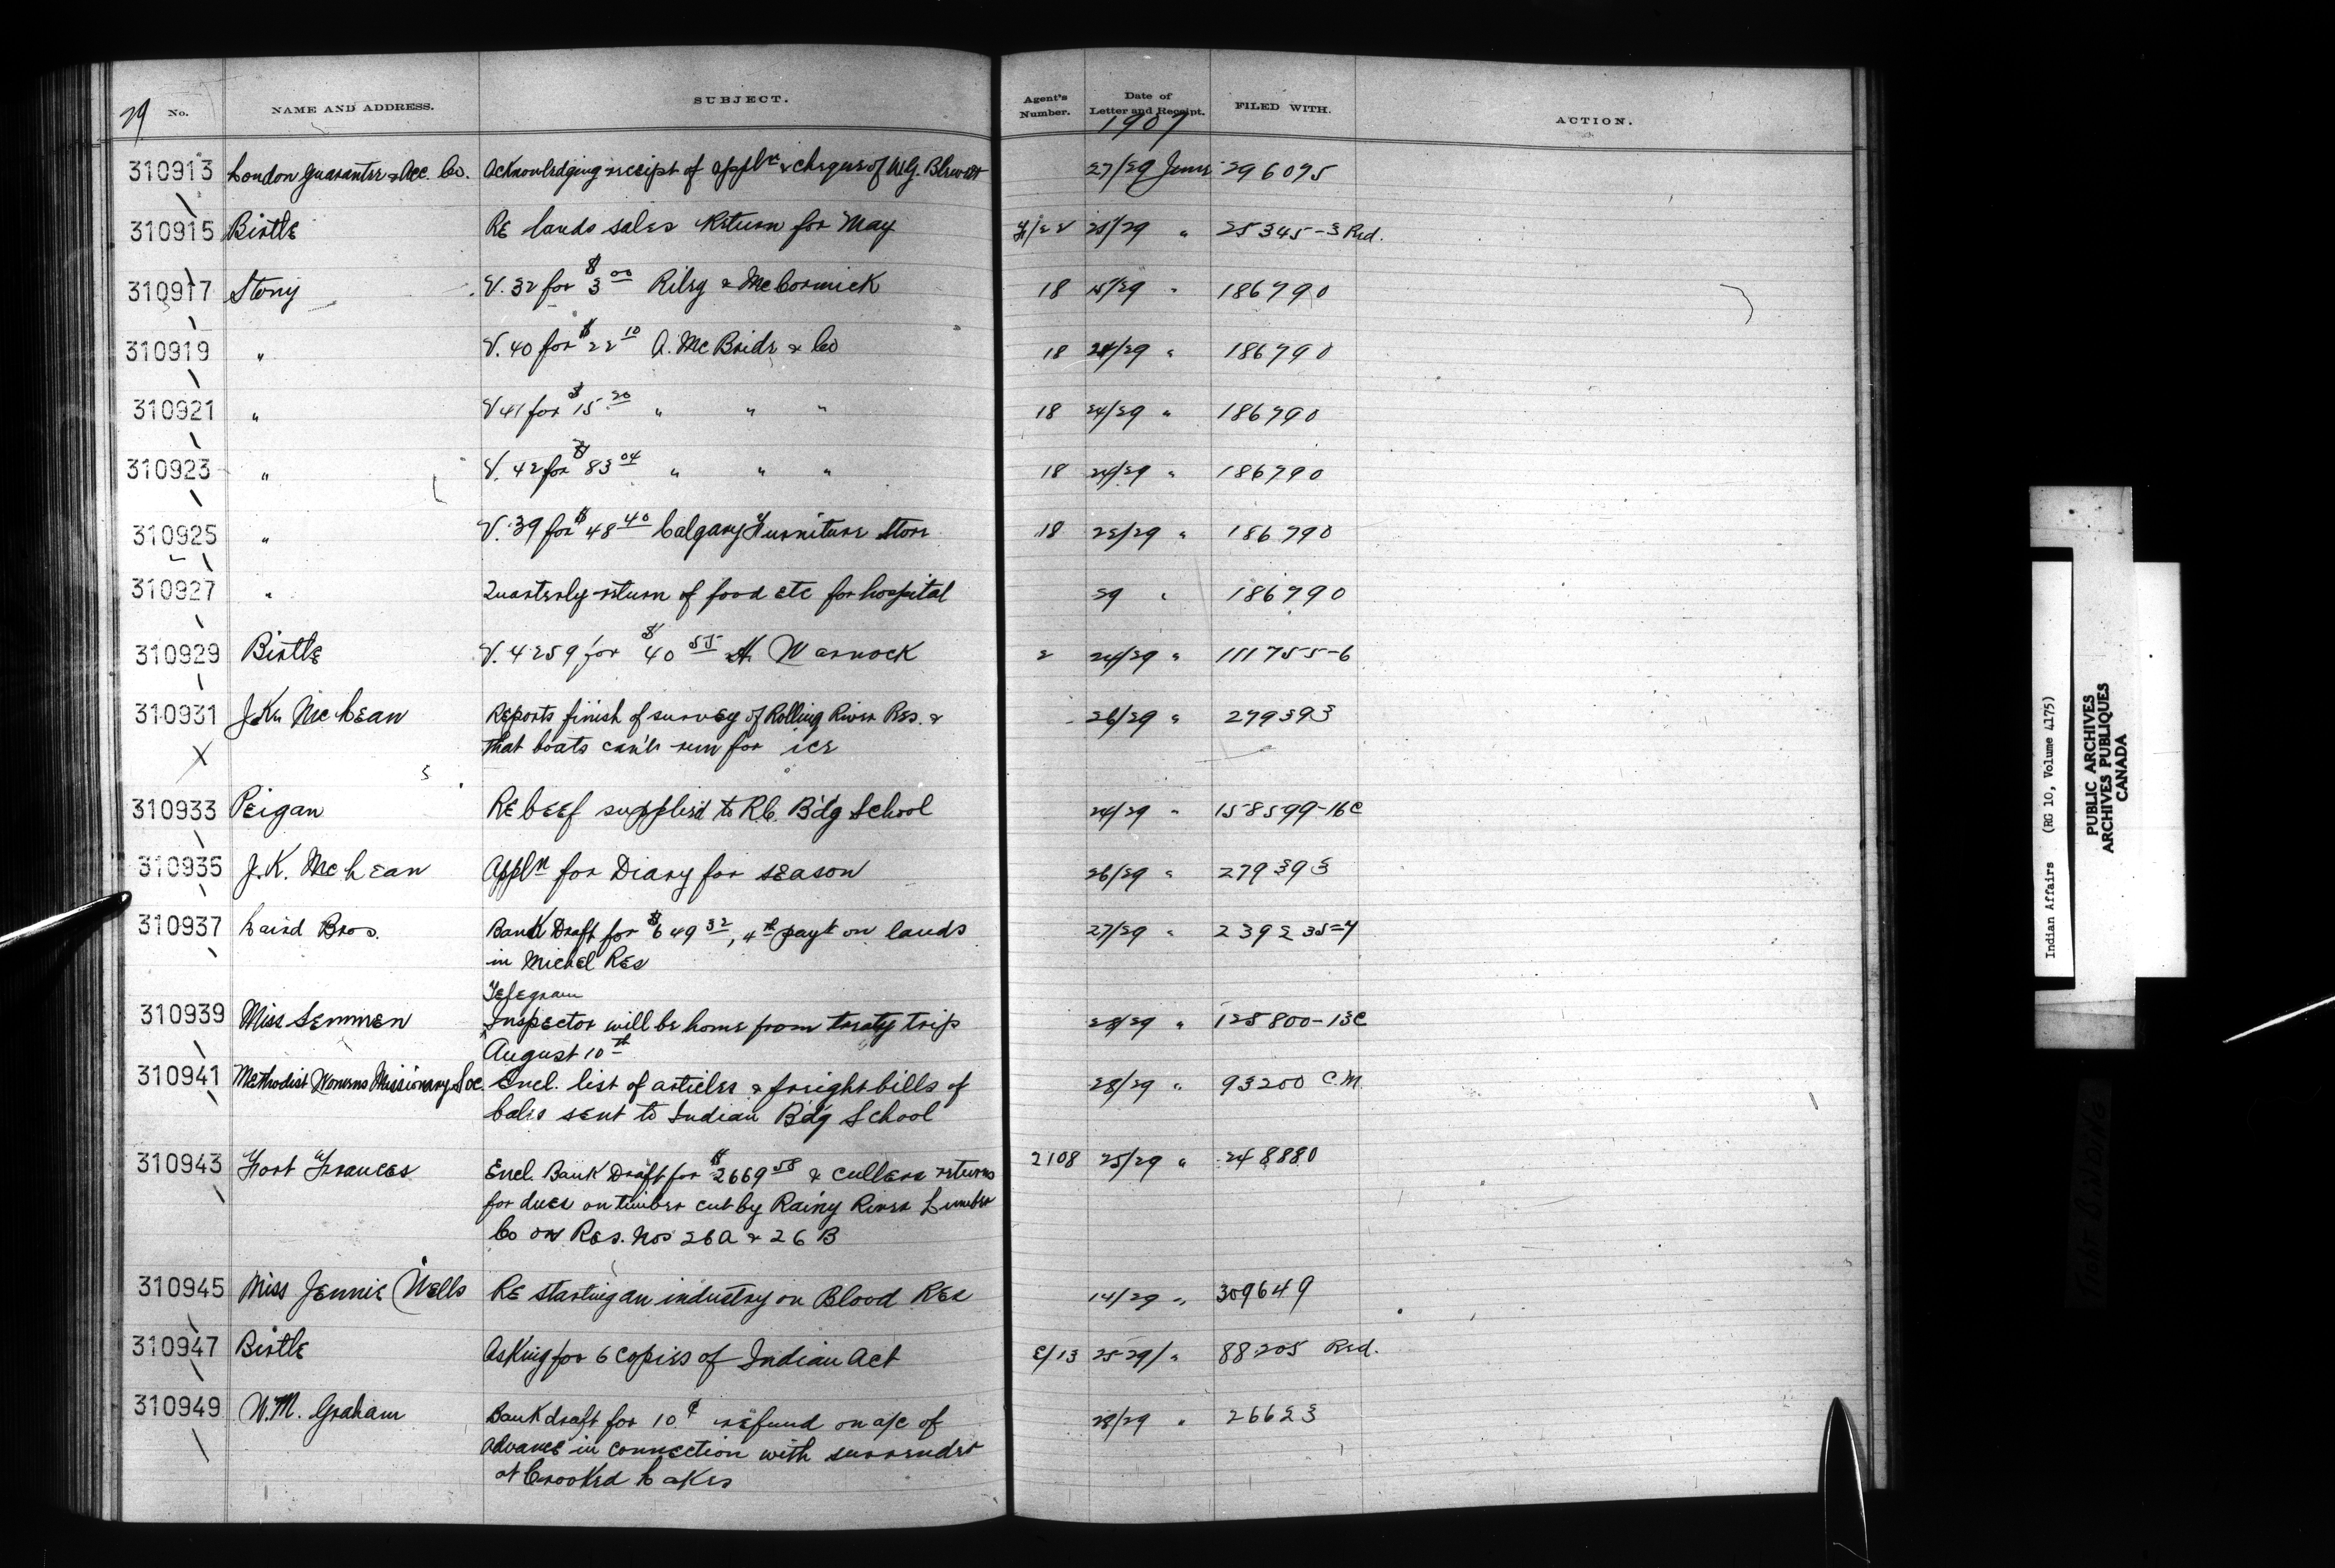 29 No. NAME AND ADDRESS. SUBJECT. Agent's Number. Date of Letter and Receipt. FILED WITH. ACTION.
1907
310913 London Guarantee & Acc. Co. Acknowledging receipt of appl'n & cheque of W.G. Blewett 27/29 June 296075
310915 Birtle Re lands sales Return for May 25/29 " 25345-3 Red.
310917 Stony V. 32 for $3 00 Riley & McCormick 18 15/29 " 186790
310919 " V. 40 for $22 10 A. McBride & Co 18 24/29 " 186790
310921 " V 41 for $15. 20 " " " 18 24/29 " 186790
310923 " V. 42 for $83 04 " " " 18 24/29 " 186790
310925 " V. 39 for $48 40 Calgary Furniture Store 18 /29 " 186790
310927 " Quarterly return of food etc for hospital 29 " 186790
310929 Birtle V. 4259 for $40 55 H. Warnock 2 24/29 " 111755-6
310931 J.K. McLean Reports finish of survey of Rolling River Res. & 26/29 " 279393
that boats can't run for ice
310933 Peigan Re beef supplied to R.C. B'dg School 24/29 " 158599-16C
310935 J.K. McLean Appl'n for Diary for season 26/29 " 279393
310937 Laird Bros. Bank Draft for $649 32, 4th pay't on lands 27/29 " 239235-4
in Michel Res
Telegram
310939 Miss Semmen Inspector will be home from treaty trip 28/29 " 125800-13C
August 10th
310941 Methodist Womens Missionary Soc. Encl. list of articles & freight bills of 28/29 " 93200 C.M.
bales sent to Indian B'dg School
310943 Fort Frances Encl. Bank Draft for $2669 58 & cullers returns 2108 25/29 " 248880
for dues on timber cut by Rainy River Lumber
Co on Res. Nos 26A & 26B
310945 Miss Jennie Wells Re starting an industry on Blood Res 14/29 " 309649
310947 Birtle Asking for 6 copies of Indian Act E/13 25-29/ " 88205 Red.
310949 W.M. Graham Bank draft for 10¢ refund on a/c of 28/29 " 26623
advance in connection with surrender
at Crooked Lakes
Indian Affairs (RG 10, Volume 4175)
PUBLIC ARCHIVES
ARCHIVES PUBLIQUES
CANADA